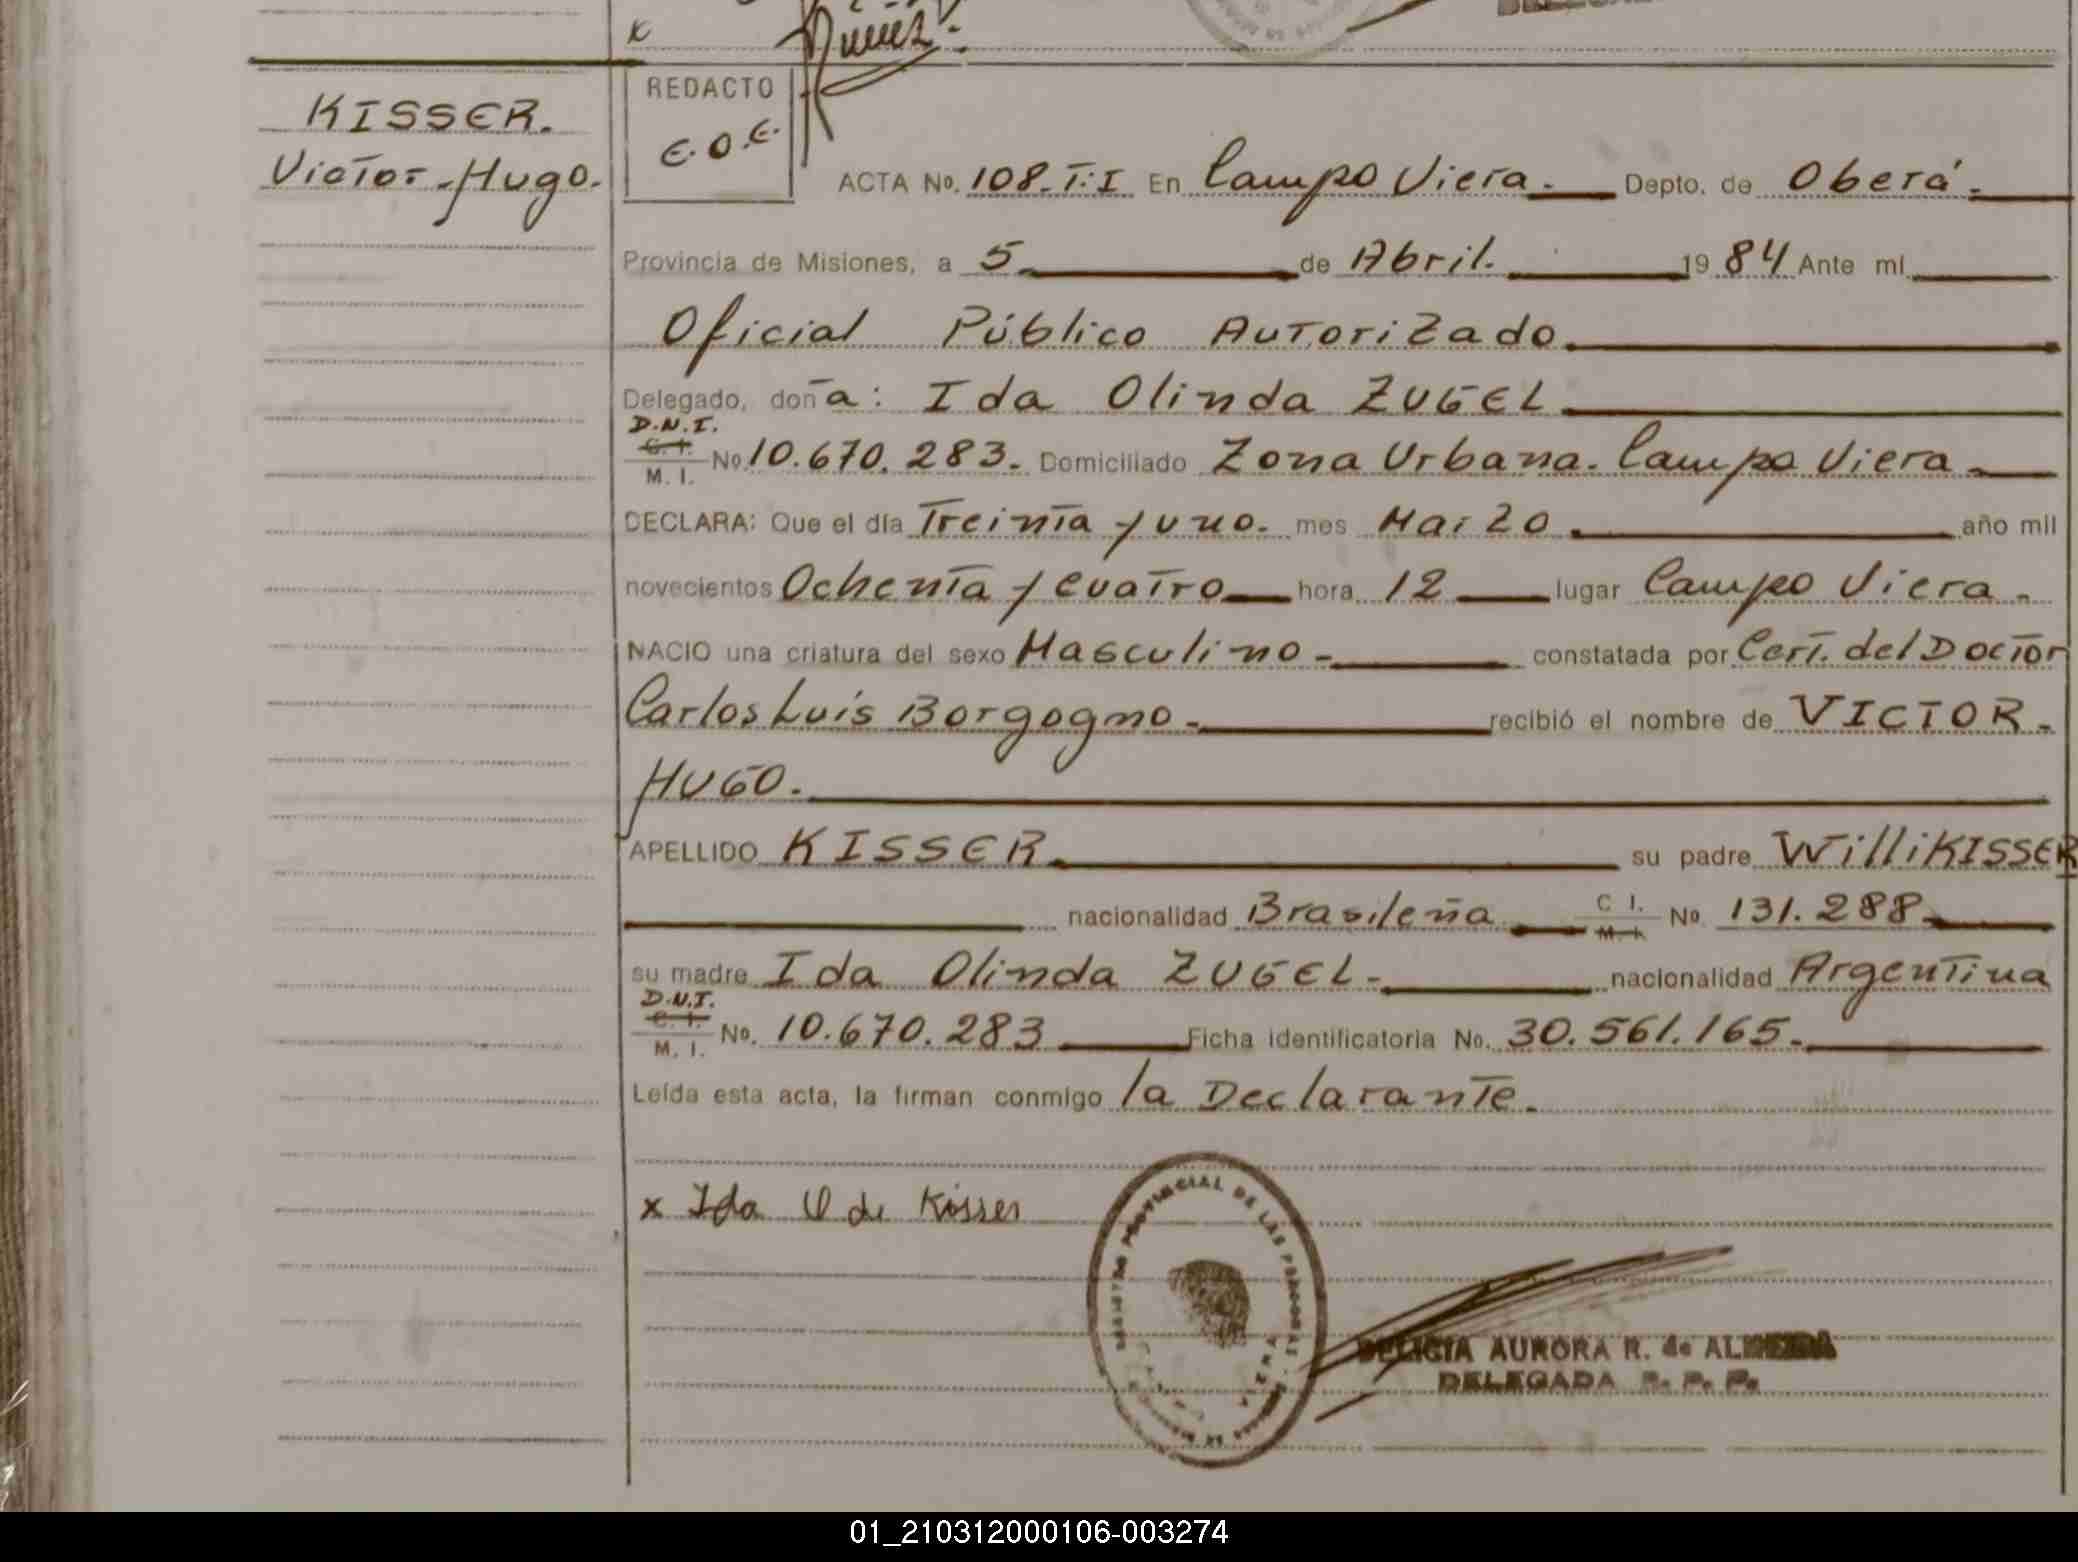 x
KISSER.
Victor Hugo.
REDACTO
E.O.E.
ACTA No. 108.T:I En Campo Viera. Depto. de Oberá.
Provincia de Misiones, a 5 de Abril. 1984 Ante mí
Oficial Público Autorizado.
Delegado, doña: Ida Olinda ZUGEL
D.N.I.
C. I.
M. I. No. 10.670.283. Domiciliado Zona Urbana. Campo Viera
DECLARA: Que el día Treinta y uno. mes Marzo año mil
novecientos Ochenta y cuatro hora 12 lugar Campo Viera.
NACIO una criatura del sexo Masculino constatada por Cert. del Doctor
Carlos Luis Borgogno. recibió el nombre de VICTOR
HUGO.
APELLIDO KISSER su padre Willi KISSER
nacionalidad Brasileña C I. M. I. No. 131.288
su madre Ida Olinda ZUGEL. nacionalidad Argentina
D.N.I.
C. I.
M. I. No. 10.670.283 Ficha identificatoria No. 30.561.165.
Leída esta acta, la firman conmigo la Declarante.
x Ida O de Kisser
REGISTRO PROVINCIAL DE LAS PERSONAS
DELICIA AURORA R. de ALMEIDA
DELEGADA R. P. P.
01_210312000106-003274